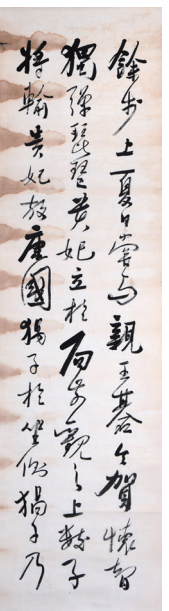 餘步上夏日嘗與親王碁令賀懷智
獨彈琵琶貴妃立於局前觀之上數子
將輸貴妃放康國猧子於坐側猧子乃